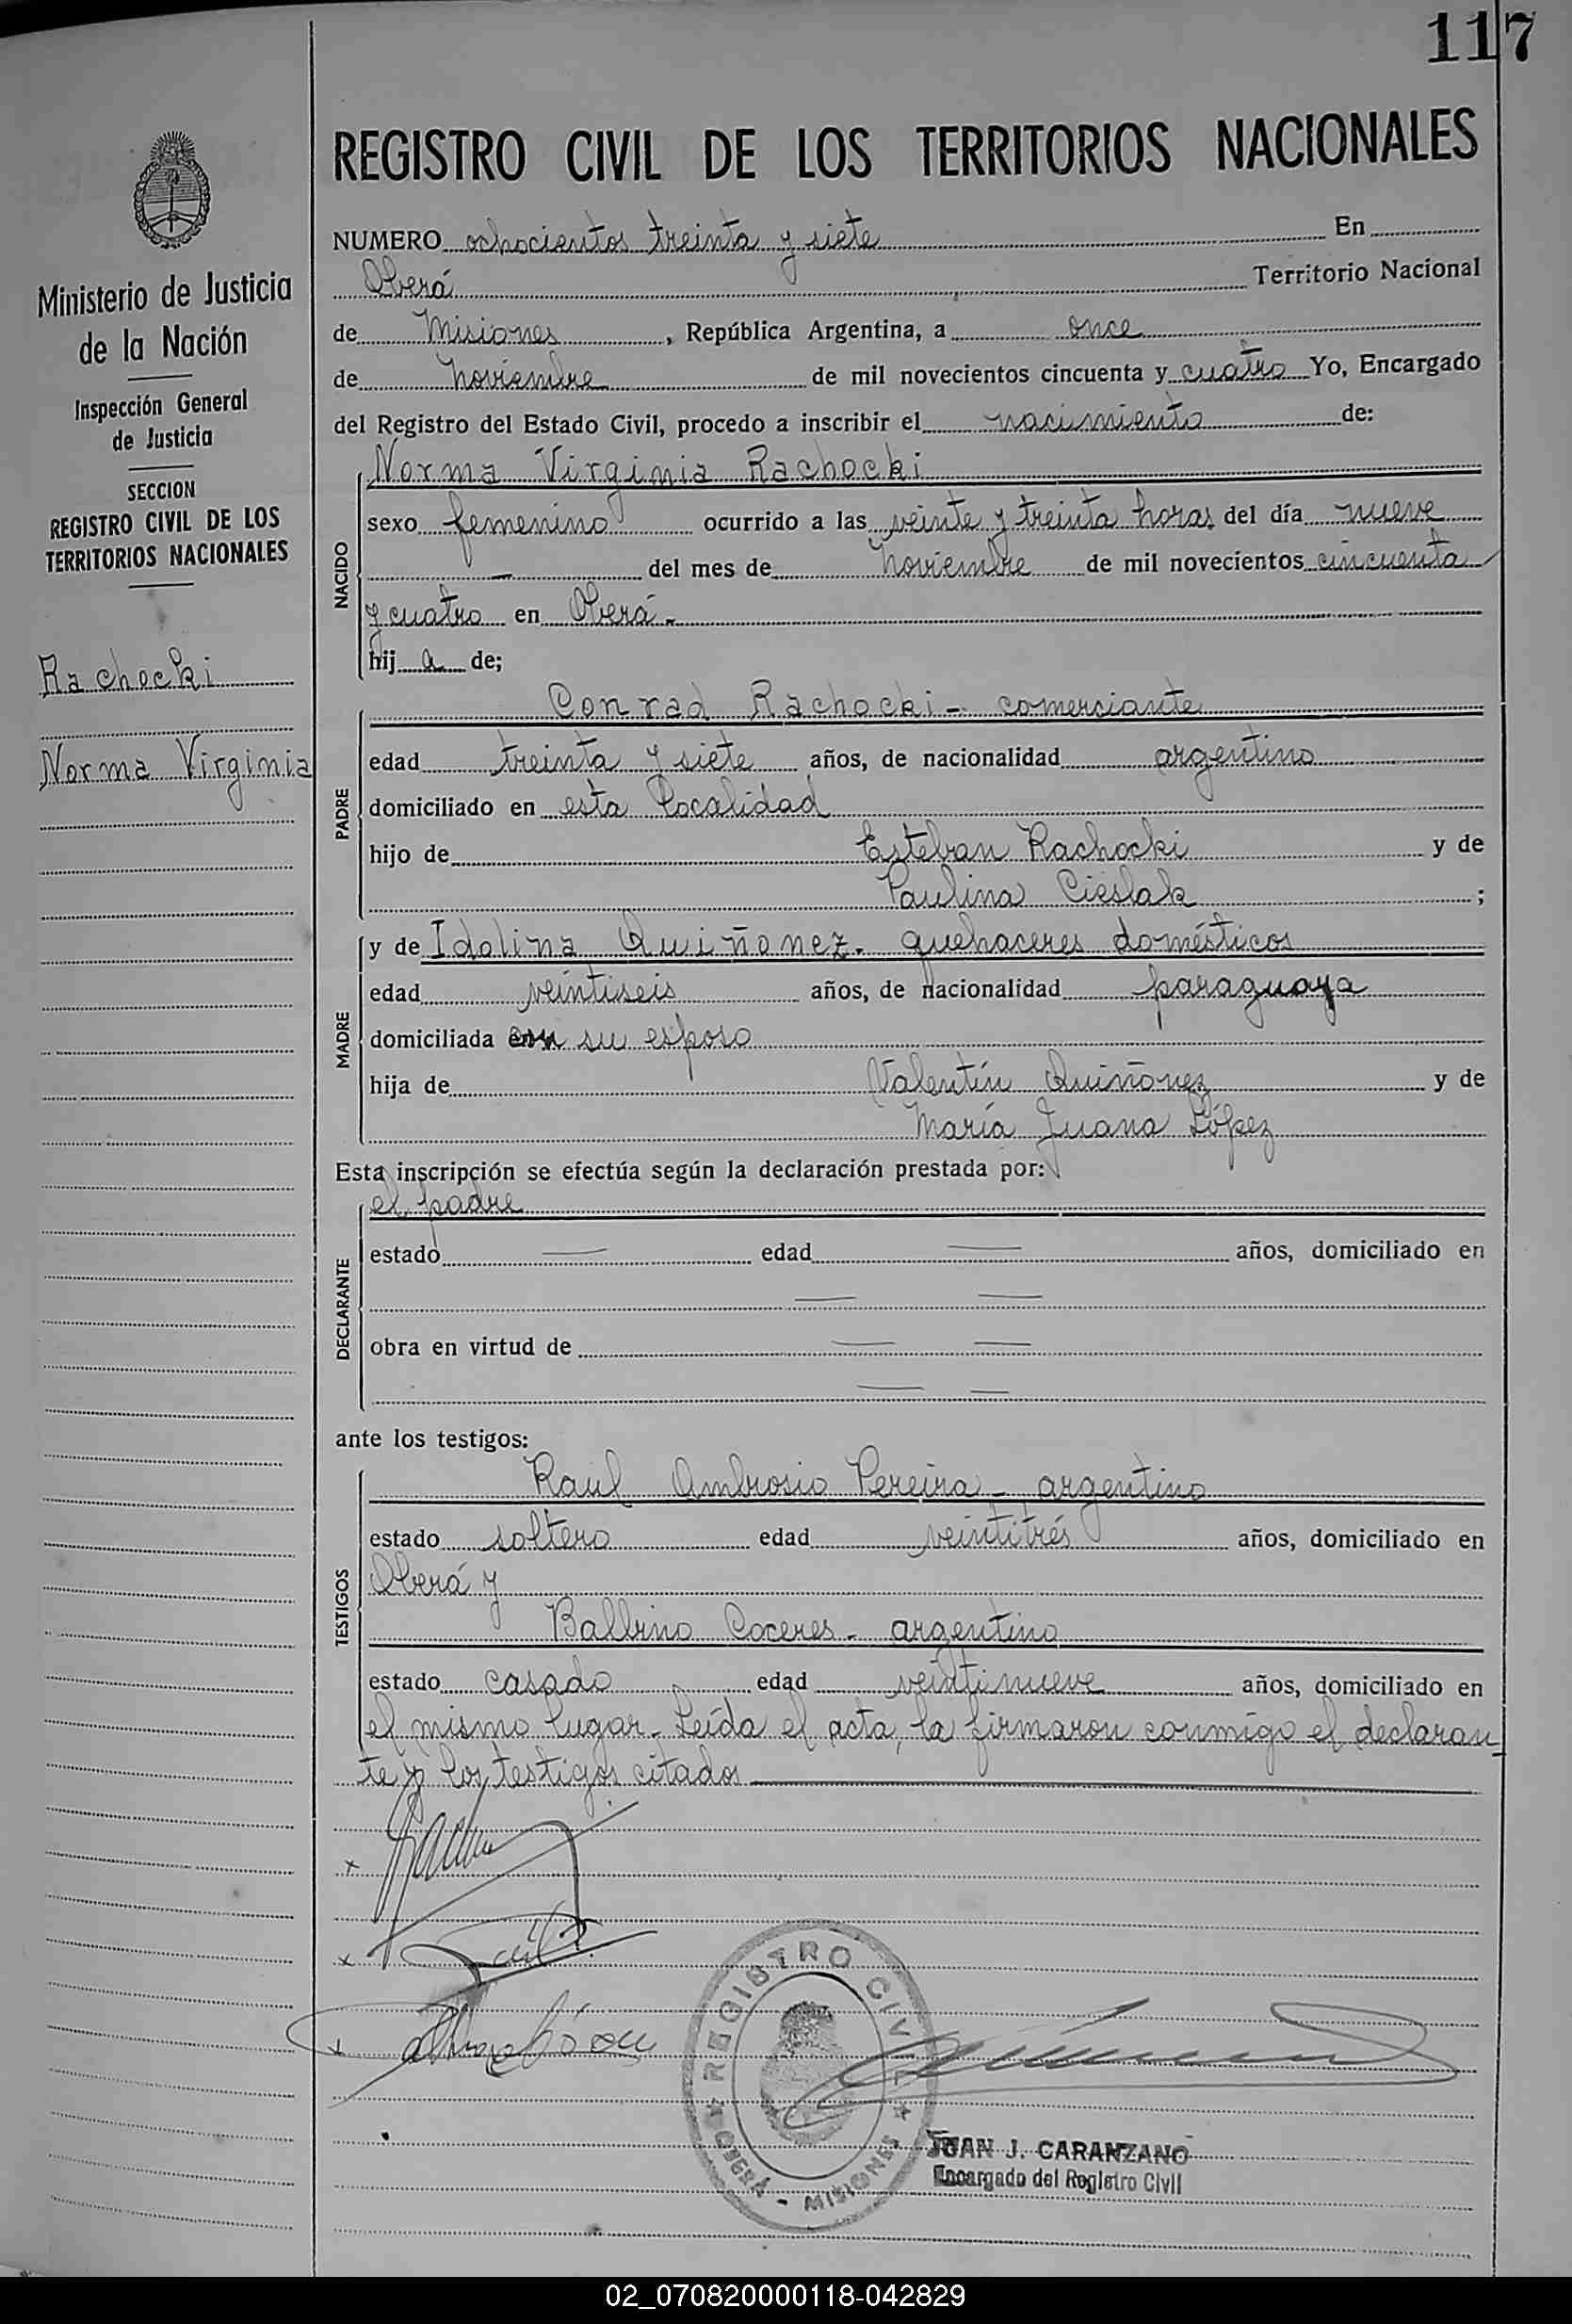 117
REGISTRO CIVIL DE LOS TERRITORIOS NACIONALES
Ministerio de Justicia
de la Nación
Inspección General
de Justicia
SECCION
REGISTRO CIVIL DE LOS
TERRITORIOS NACIONALES
Rachocki
Norma Virginia
NUMERO ochocientos treinta y siete En
Oberá Territorio Nacional
de Misiones, República Argentina, a once
de noviembre de mil novecientos cincuenta y cuatro Yo, Encargado
del Registro del Estado Civil, procedo a inscribir el nacimiento de:
NACIDO
Norma Virginia Rachocki
sexo femenino ocurrido a las veinte y treinta horas del día nueve
— del mes de noviembre de mil novecientos cincuenta
y cuatro en Oberá.-
hij a de;
PADRE
Conrad Rachocki - comerciante
edad treinta y siete años, de nacionalidad argentino
domiciliado en esta localidad
hijo de Esteban Rachocki y de
Paulina Cieslak ;
MADRE
y de Idolina Quiñonez. quehaceres domésticos
edad veintiseis años, de nacionalidad paraguaya
domiciliada con su esposo
hija de Valentín Quiñónez y de
María Juana López
Esta inscripción se efectúa según la declaración prestada por:
DECLARANTE
el padre
estado — edad — años, domiciliado en
— —
obra en virtud de — —
— —
ante los testigos:
TESTIGOS
Raul Ambrosio Pereira - argentino
estado soltero edad veintitrés años, domiciliado en
Oberá y
Balbino Coceres - argentino
estado casado edad veintinueve años, domiciliado en
el mismo lugar.- Leída el acta, la firmaron conmigo el declaran-
te y los testigos citados
REGISTRO CIVIL
OBERÁ - MISIONES
JUAN J. CARANZANO
Encargado del Registro Civil
02_070820000118-042829